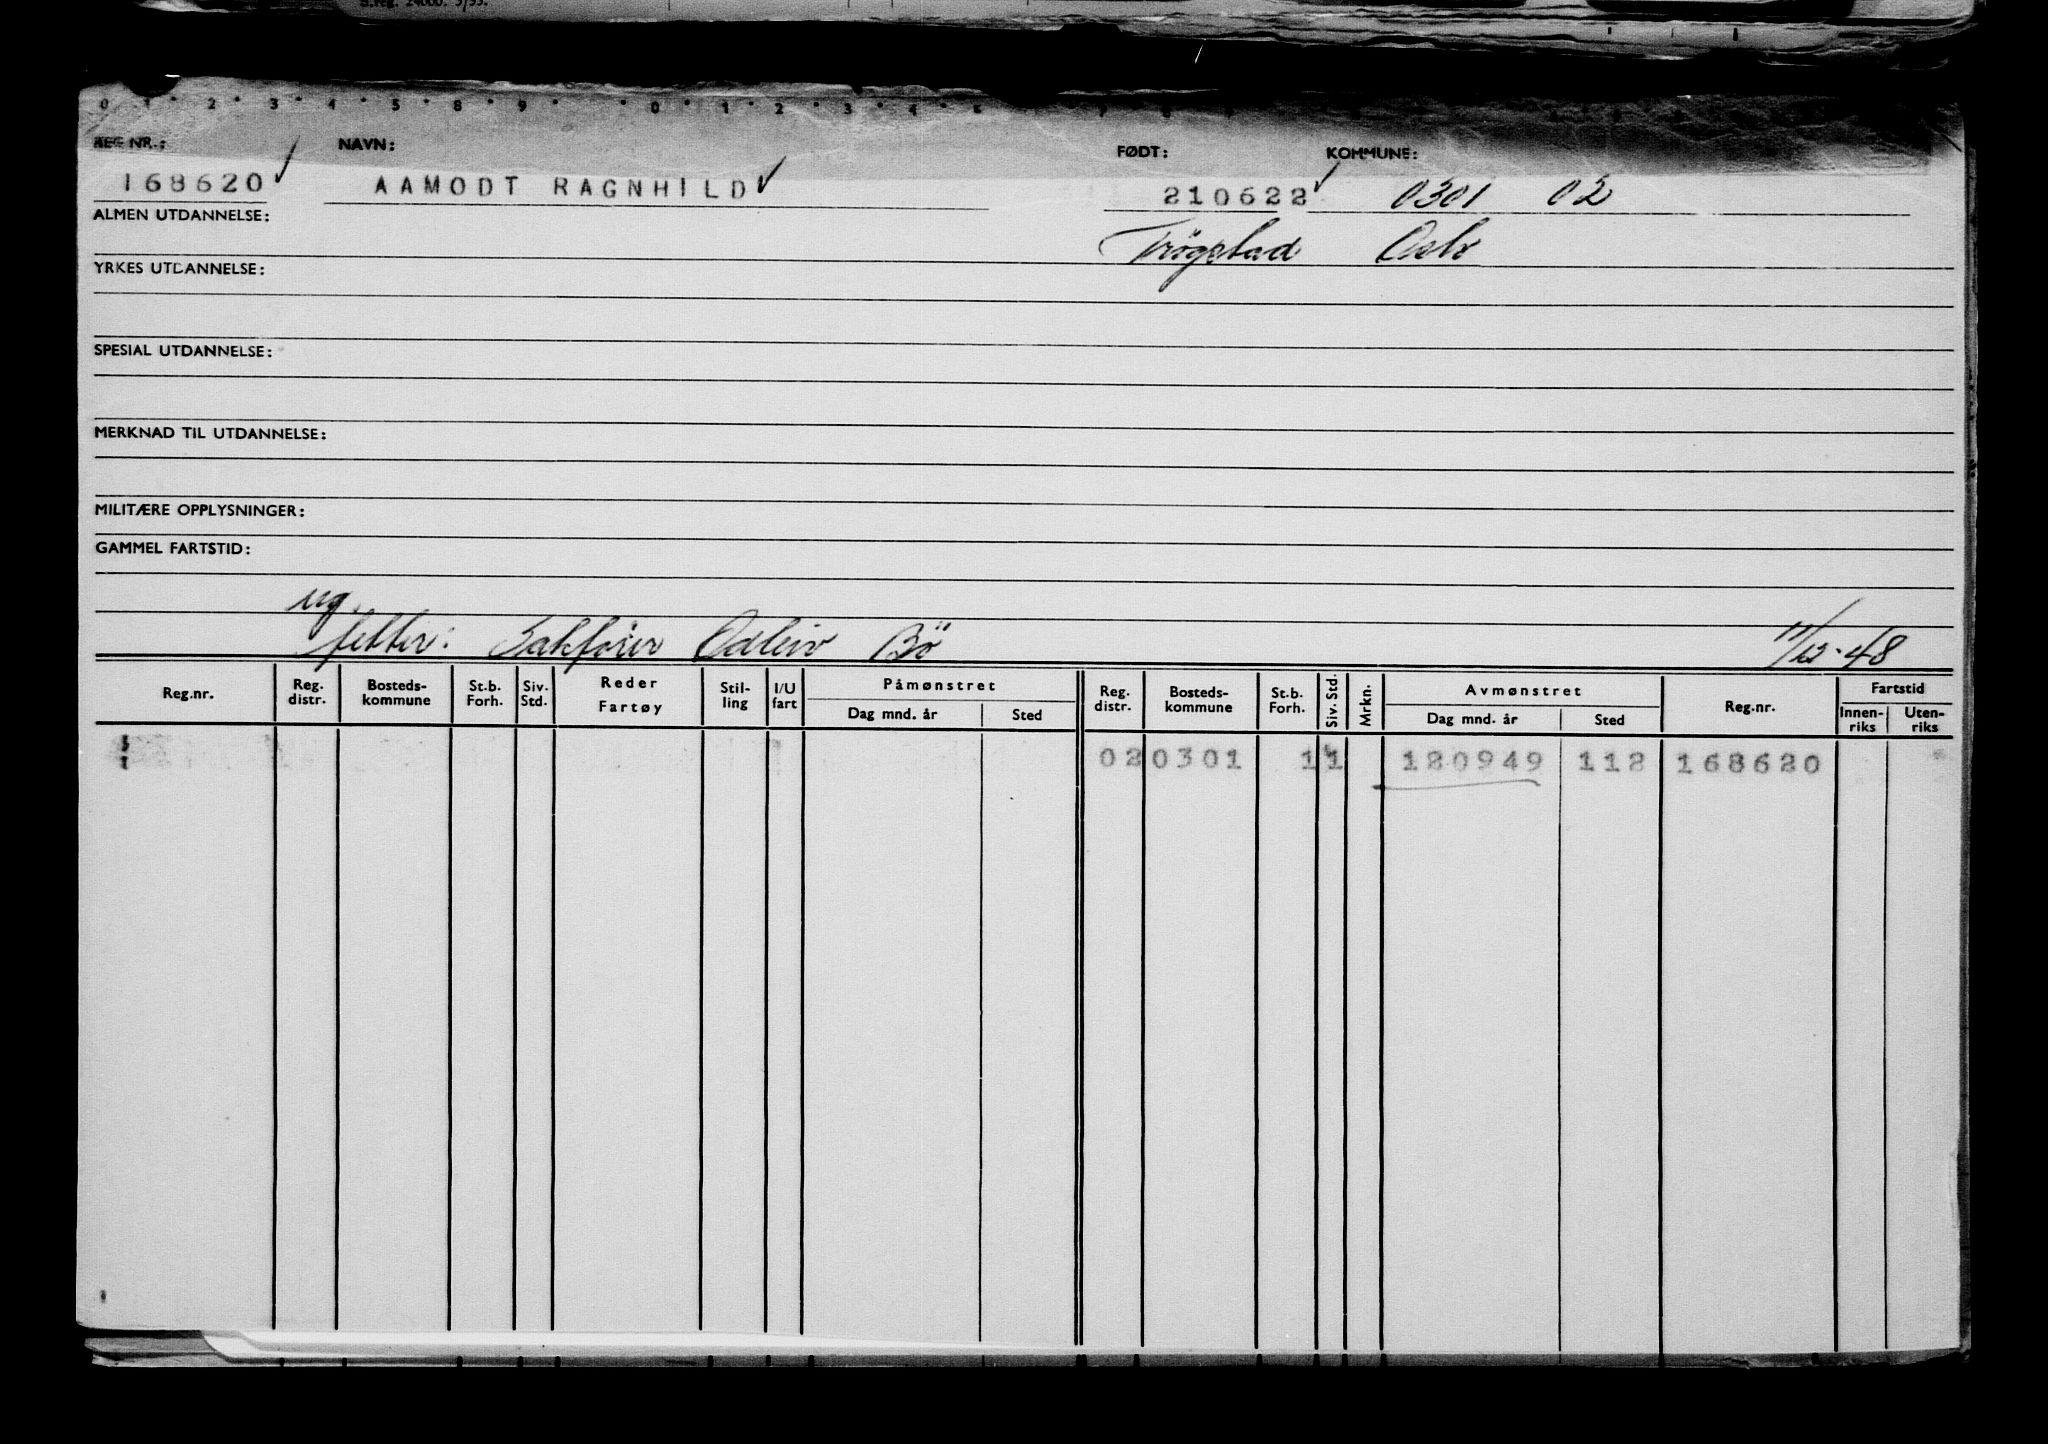 S.reg. 24000. 3/55.
0 1 2 3 4 5 8 9 0 1 2 3 4 7
REG NR.: NAVN: FØDT: KOMMUNE:
168620 AAMODT RAGNHILD 210622 0301 02
ALMEN UTDANNELSE: Trøgstad Oslo
YRKES UTDANNELSE:
SPESIAL UTDANNELSE:
MERKNAD TIL UTDANNELSE:
MILITÆRE OPPLYSNINGER:
GAMMEL FARTSTID:
ug.
fetter: Sakfører Odleiv Bö 11/12-48
Reg.nr. Reg. distr. Bosteds-kommune St.b. Forh. Siv. Std. Reder Fartøy Stil-ling I/U fart Påmønstret Dag mnd. år Sted Reg. distr. Bosteds-kommune St.b. Forh. Siv. Std. Mrkn. Avmønstret Dag mnd. år Sted Reg.nr. Fartstid Innen-riks Uten-riks
02 0301 1 1 120949 112 168620